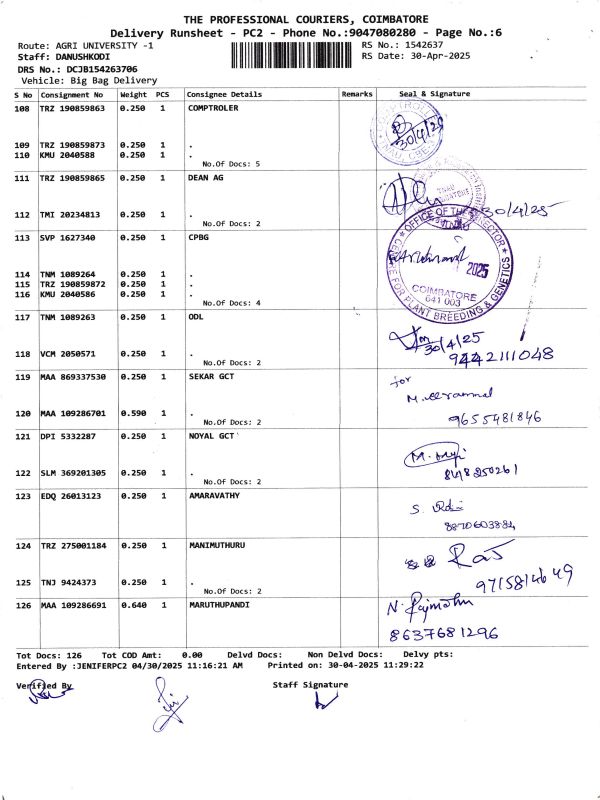 THE PROFESSIONAL COURIERS, COIMBATORE
Delivery Runsheet - PC2 - Phone No.:9047080280 - Page No.:6
Route: AGRI UNIVERSITY -1
RS No.: 1542637
Staff: DANUSHKODI
RS Date: 30-Apr-2025
DRS No.: DCJB154263706
Vehicle: Big Bag Delivery
S No Consignment No Weight PCS Consignee Details Remarks Seal & Signature
108 TRZ 190859863 0.250 1 COMPTROLER
30/4/25
109 TRZ 190859873 0.250 1 .
110 KMU 2040588 0.250 1 .
No.Of Docs: 5
111 TRZ 190859865 0.250 1 DEAN AG
112 TMI 20234813 0.250 1 . 30/4/25
No.Of Docs: 2
113 SVP 1627340 0.250 1 CPBG
OFFICE OF THE DIRECTOR
CENTRE FOR PLANT BREEDING & GENETICS
2025
COIMBATORE
641 003
114 TNM 1089264 0.250 1 .
115 TRZ 190859872 0.250 1 .
116 KMU 2040586 0.250 1 .
No.Of Docs: 4
117 TNM 1089263 0.250 1 ODL
30/4/25
118 VCM 2050571 0.250 1 . 9442111048
No.Of Docs: 2
119 MAA 869337530 0.250 1 SEKAR GCT
for
120 MAA 109286701 0.590 1 . 9655481846
No.Of Docs: 2
121 DPI 5332287 0.250 1 NOYAL GCT
122 SLM 369201305 0.250 1 .
No.Of Docs: 2
123 EDQ 26013123 0.250 1 AMARAVATHY
8870603884
124 TRZ 275001184 0.250 1 MANIMUTHURU
Raj
125 TNJ 9424373 0.250 1 . 9715814649
No.Of Docs: 2
126 MAA 109286691 0.640 1 MARUTHUPANDI
N. Rajmohn
8637681296
Tot Docs: 126 Tot COD Amt: 0.00 Delvd Docs: Non Delvd Docs: Delvy pts:
Entered By :JENIFERPC2 04/30/2025 11:16:21 AM Printed on: 30-04-2025 11:29:22
Verified By
Staff Signature